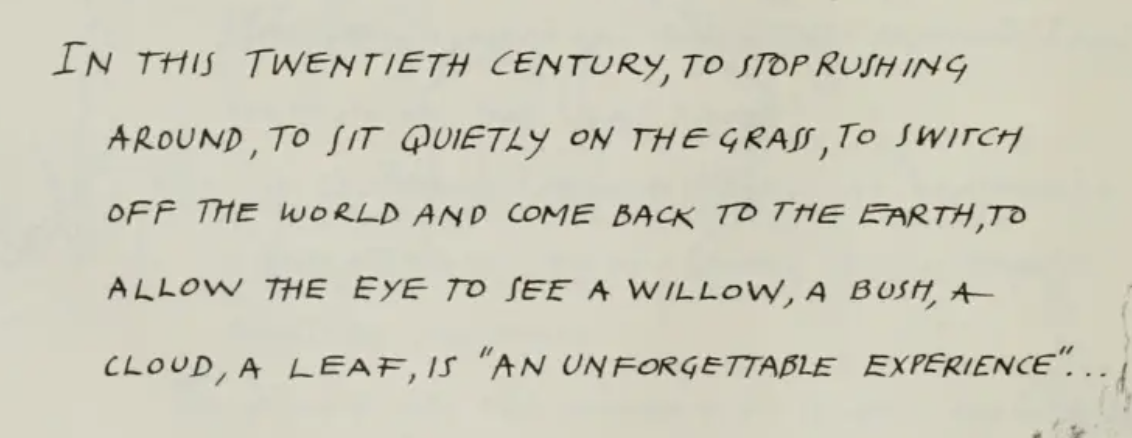 IN THIS TWENTIETH CENTURY, TO STOP RUSHING
AROUND, TO SIT QUIETLY ON THE GRASS, TO SWITCH
OFF THE WORLD AND COME BACK TO THE EARTH, TO
ALLOW THE EYE TO SEE A WILLOW, A BUSH, A
CLOUD, A LEAF, IS "AN UNFORGETTABLE EXPERIENCE"...